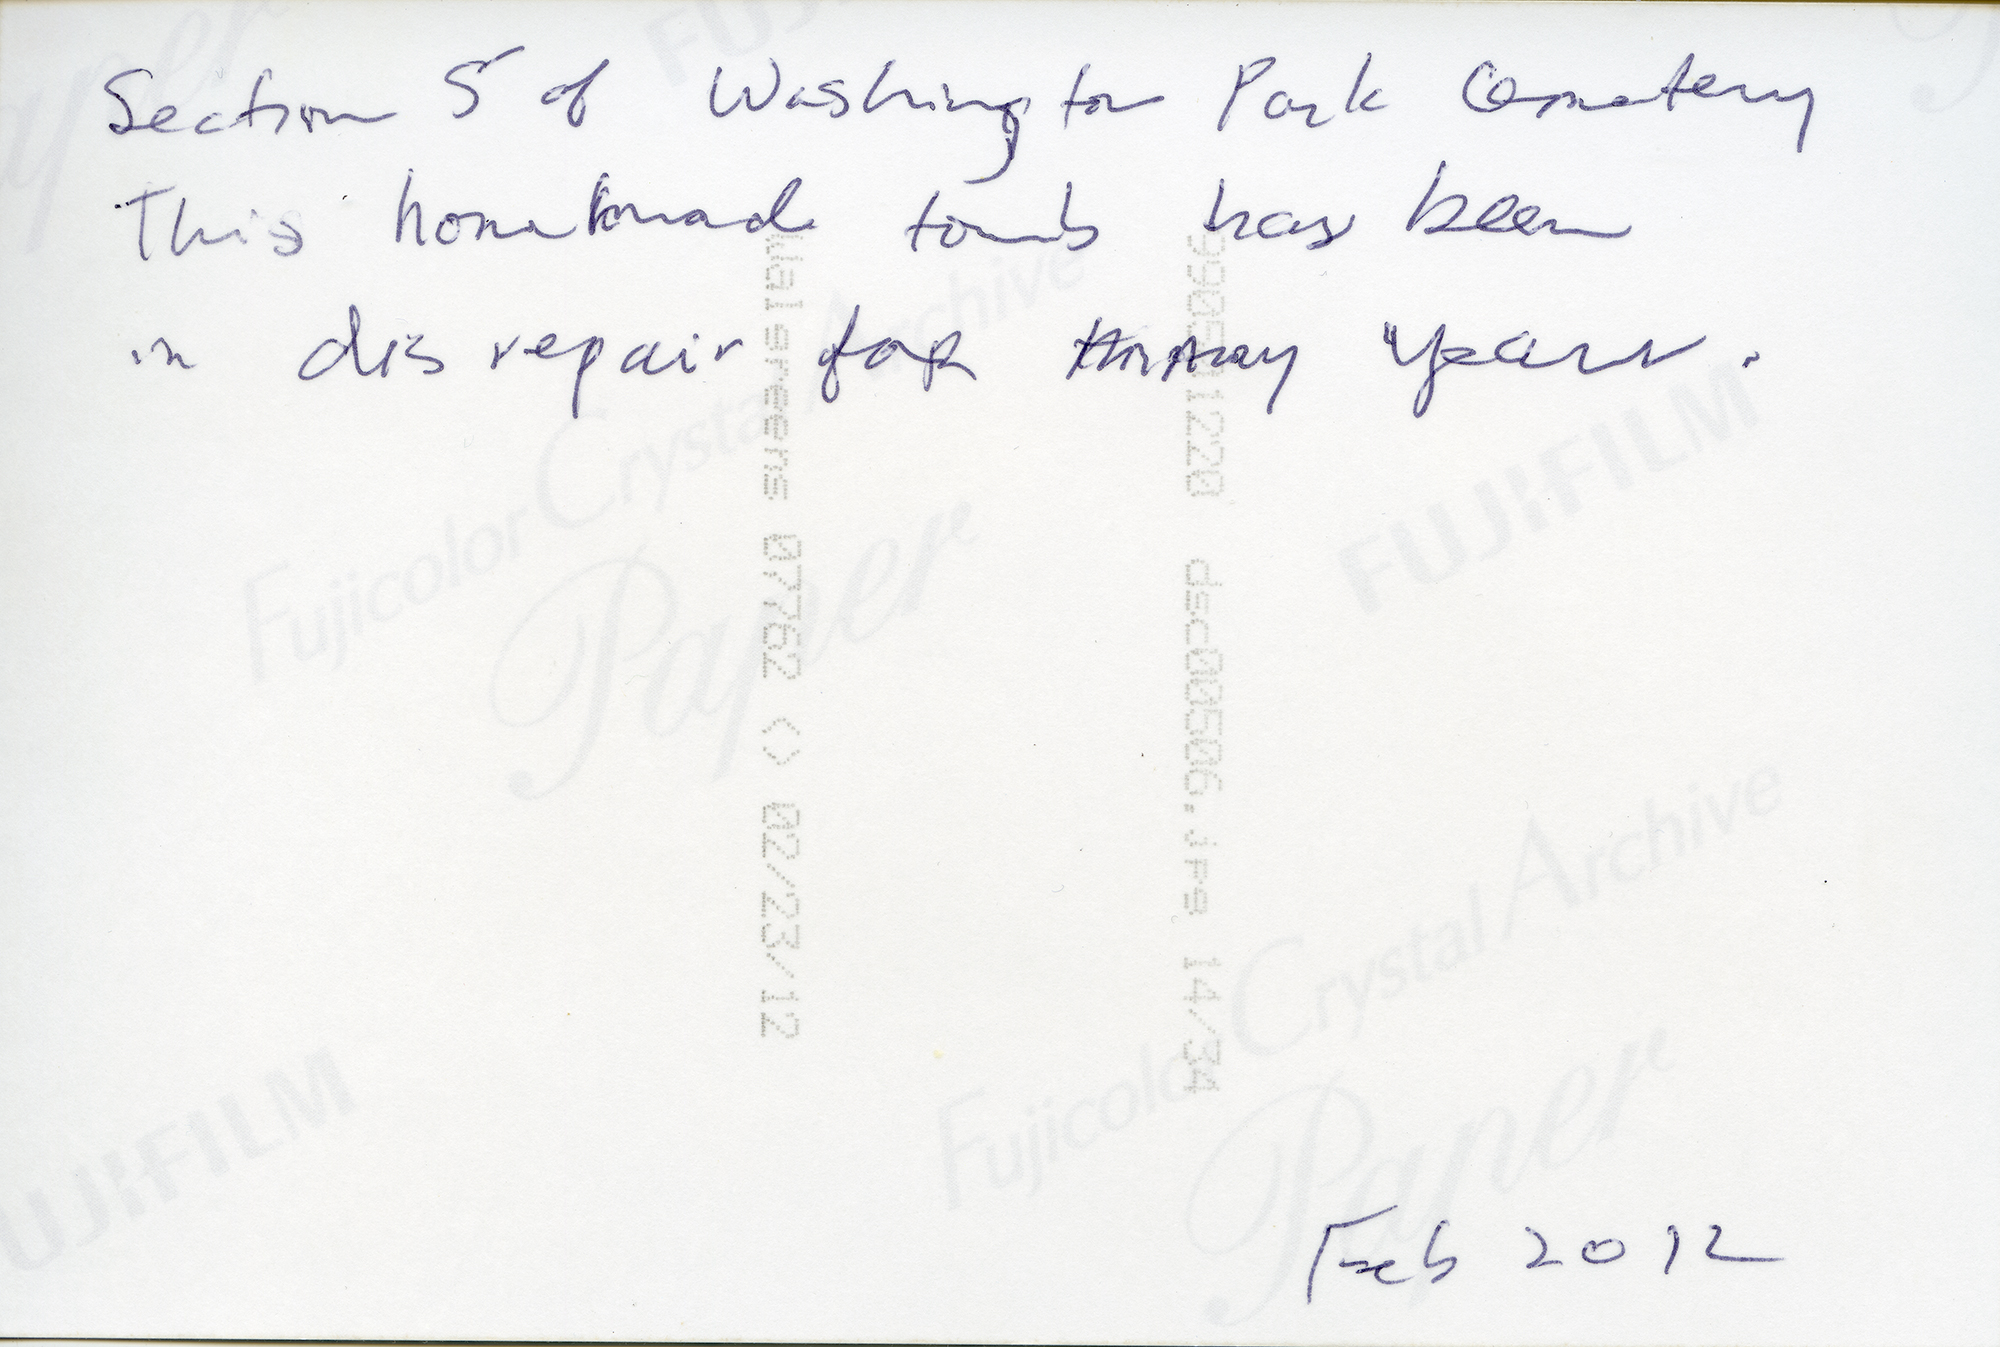 Section 5 of Washington Park Cemetery
This homemade tomb has been
in disrepair for many years.
Feb 2012
Walgreens 07762 <> 02/23/12
dsc00506.jpg 14/34
FUJIFILM
Fujicolor Crystal Archive
Paper
FUJIFILM
Fujicolor Crystal Archive
Paper